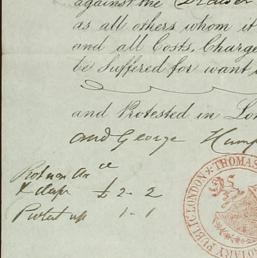 against the Drawer
as all others whom it
and all Costs, Charge
be Suffered for want
and Protested in Lon
and George Hump
& stamp £ 2 - 2
Protest 1 - 1
THOMAS
NOTARY PUBLIC LONDON